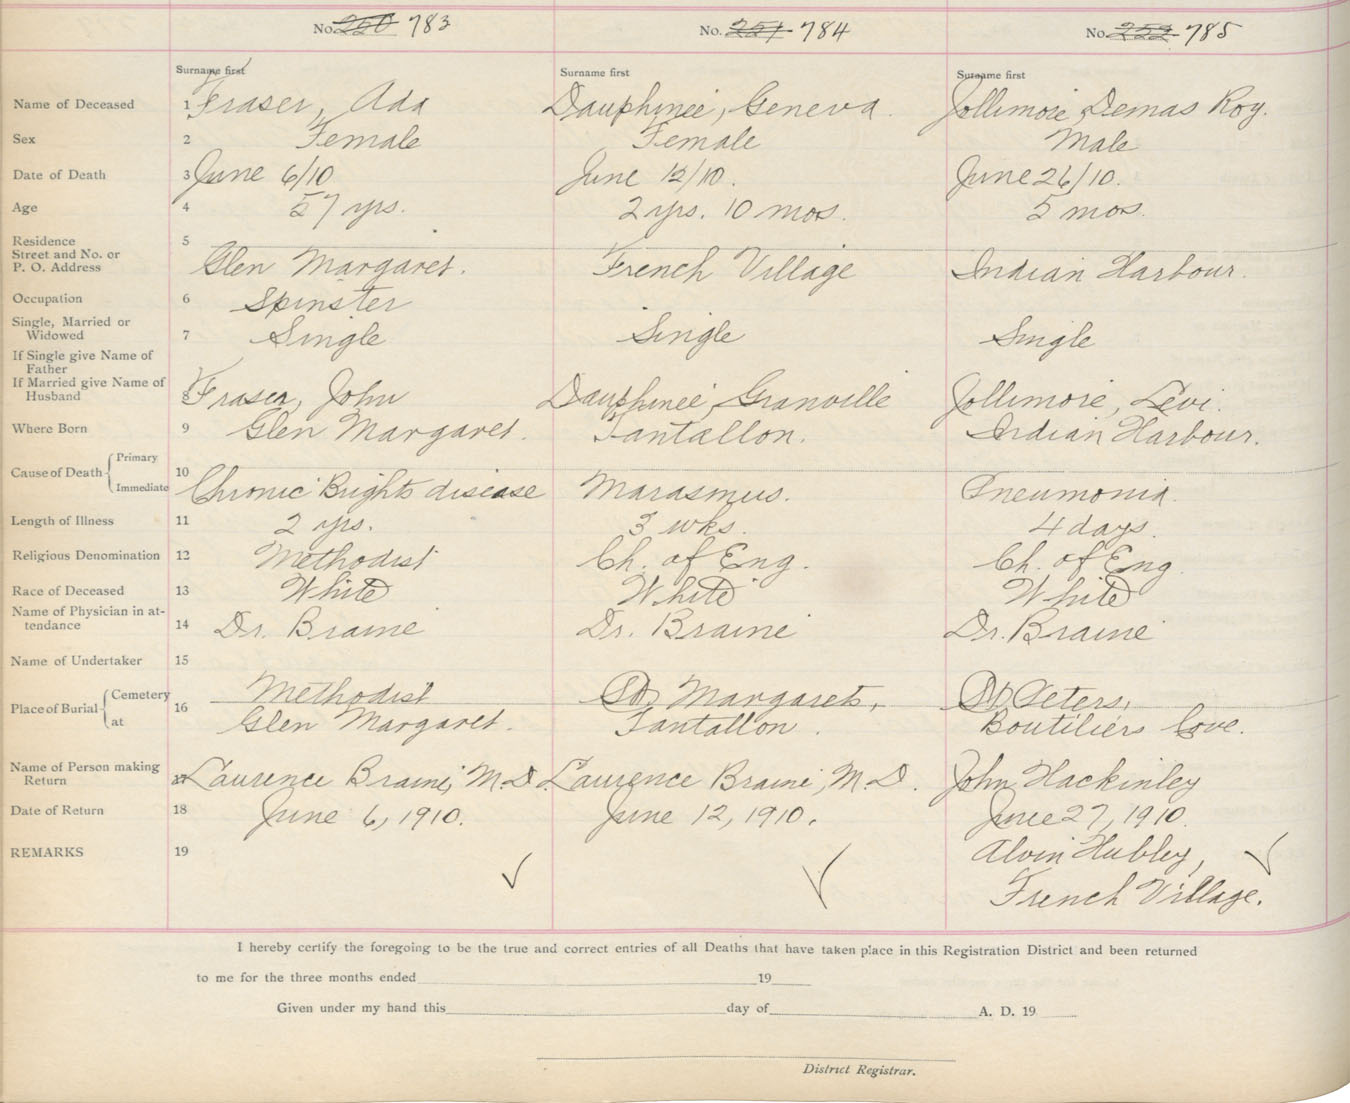 No. 250 783 No. 251 784 No. 252 785
Surname first Surname first Surname first
Name of Deceased 1 Fraser, Ada Dauphinee, Geneva. Jollimore, Demas Roy.
Sex 2 Female Female Male
Date of Death 3 June 6/10 June 12/10. June 26/10.
Age 4 57 yrs. 2 yrs. 10 mos. 5 mos.
Residence 5
Street and No. or
P. O. Address Glen Margaret. French Village Indian Harbour.
Occupation 6 Spinster
Single, Married or
Widowed 7 Single Single Single
If Single give Name of
Father
If Married give Name of
Husband 8 Fraser, John Dauphinee, Granville Jollimore, Levi.
Where Born 9 Glen Margaret. Tantallon. Indian Harbour.
Cause of Death Primary 10
Immediate Chronic Brights disease Marasmus. Pneumonia
Length of Illness 11 2 yrs. 3 wks. 4 days.
Religious Denomination 12 Methodist Ch. of Eng. Ch. of Eng.
Race of Deceased 13 White White White
Name of Physician in at-
tendance 14 Dr. Braine Dr. Braine Dr. Braine
Name of Undertaker 15
Place of Burial Cemetery 16 Methodist St. Margarets, St. Peters,
at Glen Margaret. Tantallon. Boutiliers Cove.
Name of Person making
Return 17 Laurence Braine, M.D. Laurence Braine, M.D. John Hackinley
Date of Return 18 June 6, 1910. June 12, 1910. June 27, 1910.
REMARKS 19 Alvin Hubley,
French Village.
I hereby certify the foregoing to be the true and correct entries of all Deaths that have taken place in this Registration District and been returned
to me for the three months ended 19
Given under my hand this day of A. D. 19
District Registrar.